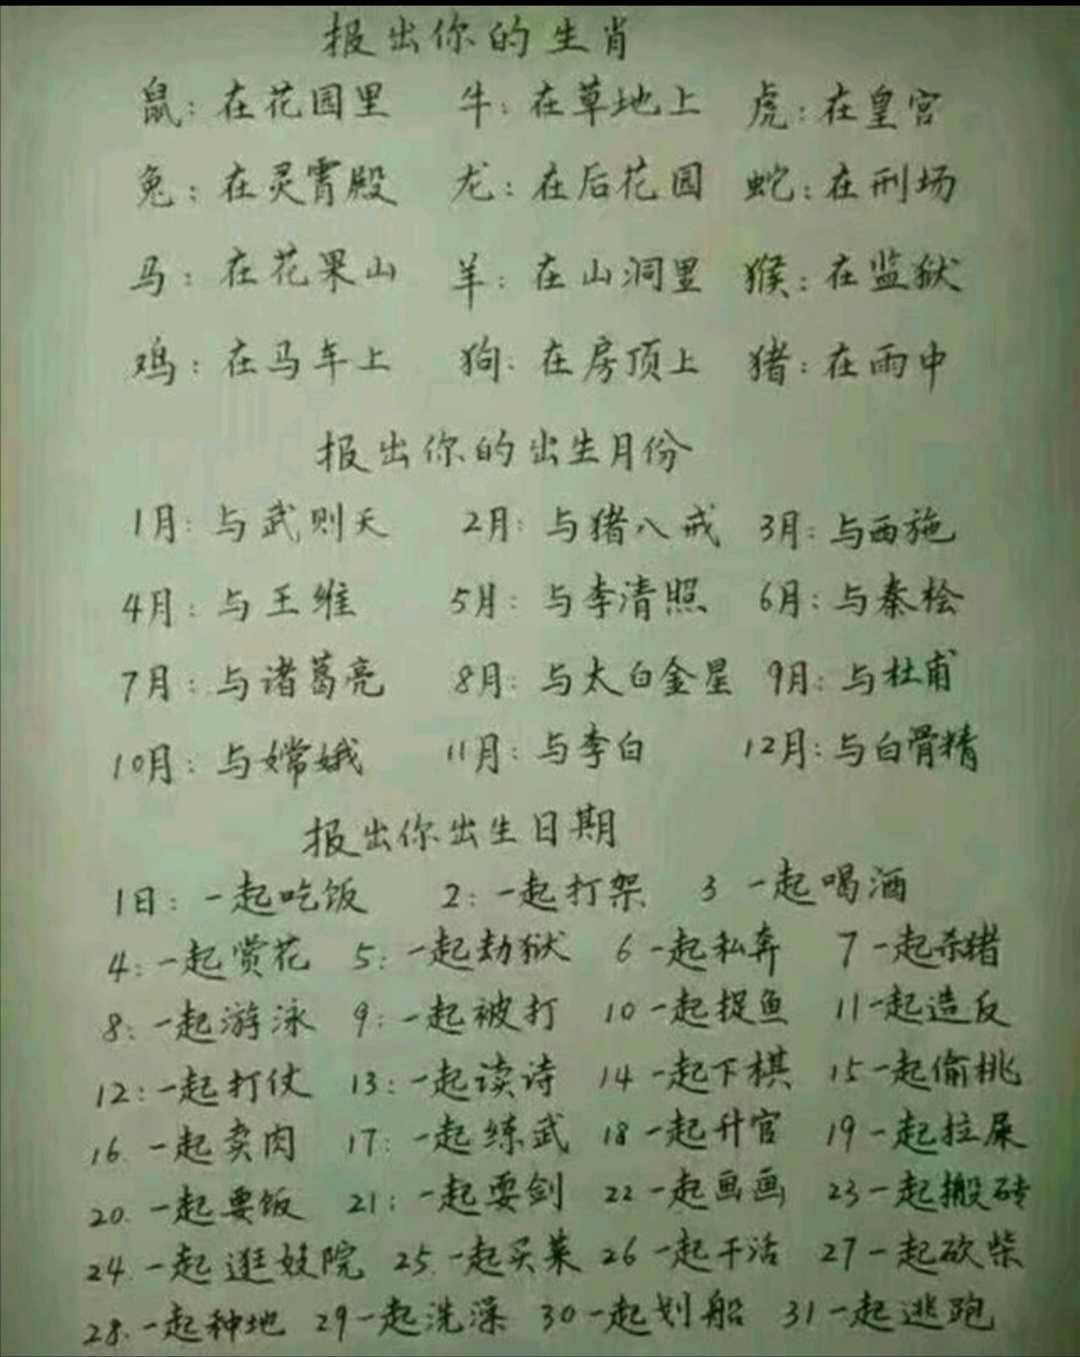 报出你的生肖
鼠：在花园里 牛：在草地上 虎：在皇宫
兔：在灵霄殿 龙：在后花园 蛇：在刑场
马：在花果山 羊：在山洞里 猴：在监狱
鸡：在马车上 狗：在房顶上 猪：在雨中
报出你的出生月份
1月：与武则天 2月：与猪八戒 3月：与西施
4月：与王维 5月：与李清照 6月：与秦桧
7月：与诸葛亮 8月：与太白金星 9月：与杜甫
10月：与嫦娥 11月：与李白 12月：与白骨精
报出你出生日期
1日：一起吃饭 2：一起打架 3 一起喝酒
4：一起赏花 5：一起劫狱 6 一起私奔 7 一起杀猪
8：一起游泳 9：一起被打 10 一起捉鱼 11 一起造反
12：一起打仗 13：一起读诗 14 一起下棋 15 一起偷桃
16. 一起卖肉 17：一起练武 18 一起升官 19 一起拉屎
20. 一起要饭 21：一起耍剑 22 一起画画 23 一起搬砖
24. 一起逛妓院 25. 一起买菜 26 一起干活 27 一起砍柴
28. 一起种地 29 一起洗澡 30 一起划船 31 一起逃跑